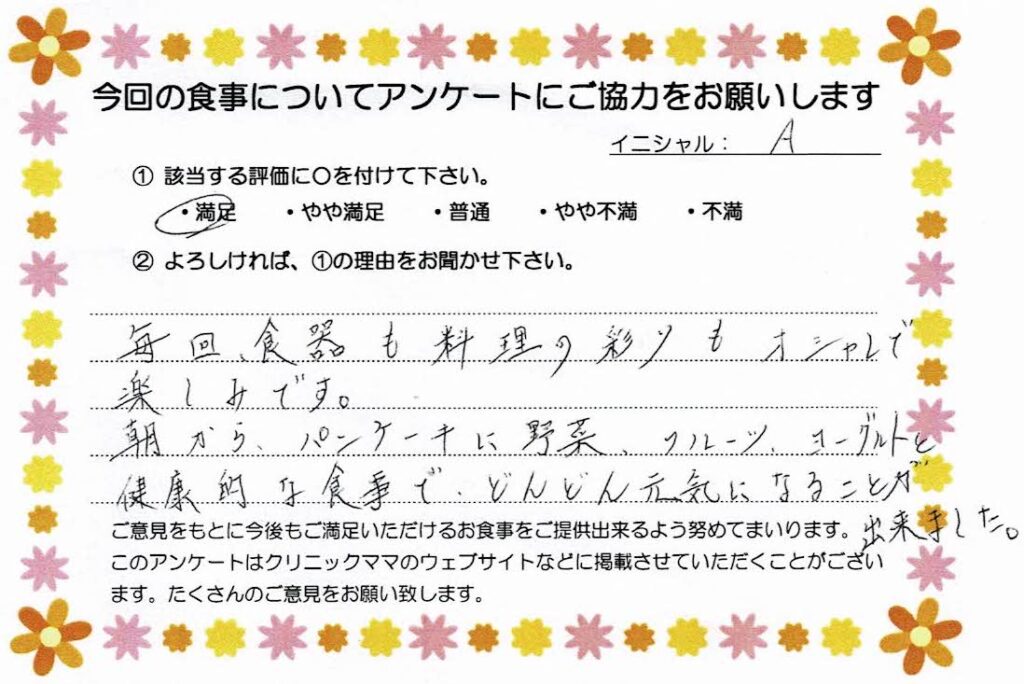 今回の食事についてアンケートにご協力をお願いします
イニシャル： A
① 該当する評価に〇を付けて下さい。
・満足 ・やや満足 ・普通 ・やや不満 ・不満
② よろしければ、①の理由をお聞かせ下さい。
毎回、食器も料理の彩りもオシャレで
楽しみです。
朝から、パンケーキに野菜、フルーツ、ヨーグルトと
健康的な食事で、どんどん元気になることが
出来ました。
ご意見をもとに今後もご満足いただけるお食事をご提供出来るよう努めてまいります。
このアンケートはクリニックママのウェブサイトなどに掲載させていただくことがござい
ます。たくさんのご意見をお願い致します。